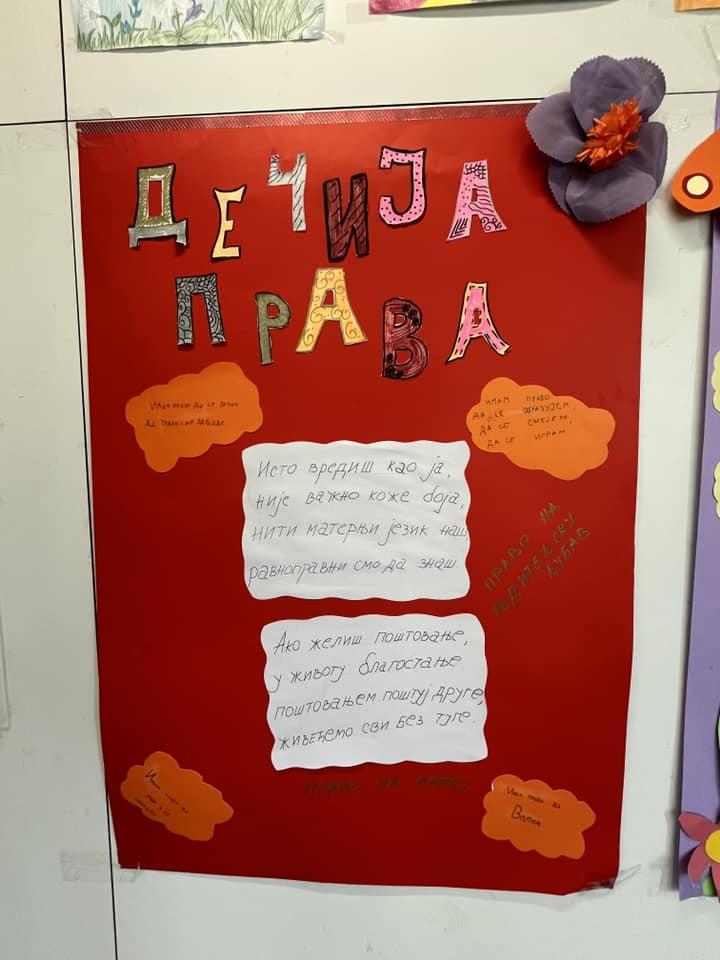 ДЕЧИЈА
ПРАВА
Имам право да се
ИМАМ ПРАВО
ДА СЕ ОБРАЗУЈЕМ,
ДА СЕ СМЕЈЕМ,
ДА СЕ ИГРАМ
Исто вредиш као ја,
није важно коже боја,
нити матерњи језик наш,
равноправни смо да знаш.
ПРАВО НА
РОДИТЕЉСКУ
ЉУБАВ
Ако желиш поштовање,
у животу благостање
поштовањем поштуј друге,
живећемо сви без туге.
ПРАВО НА
Имам право да
Имам право на